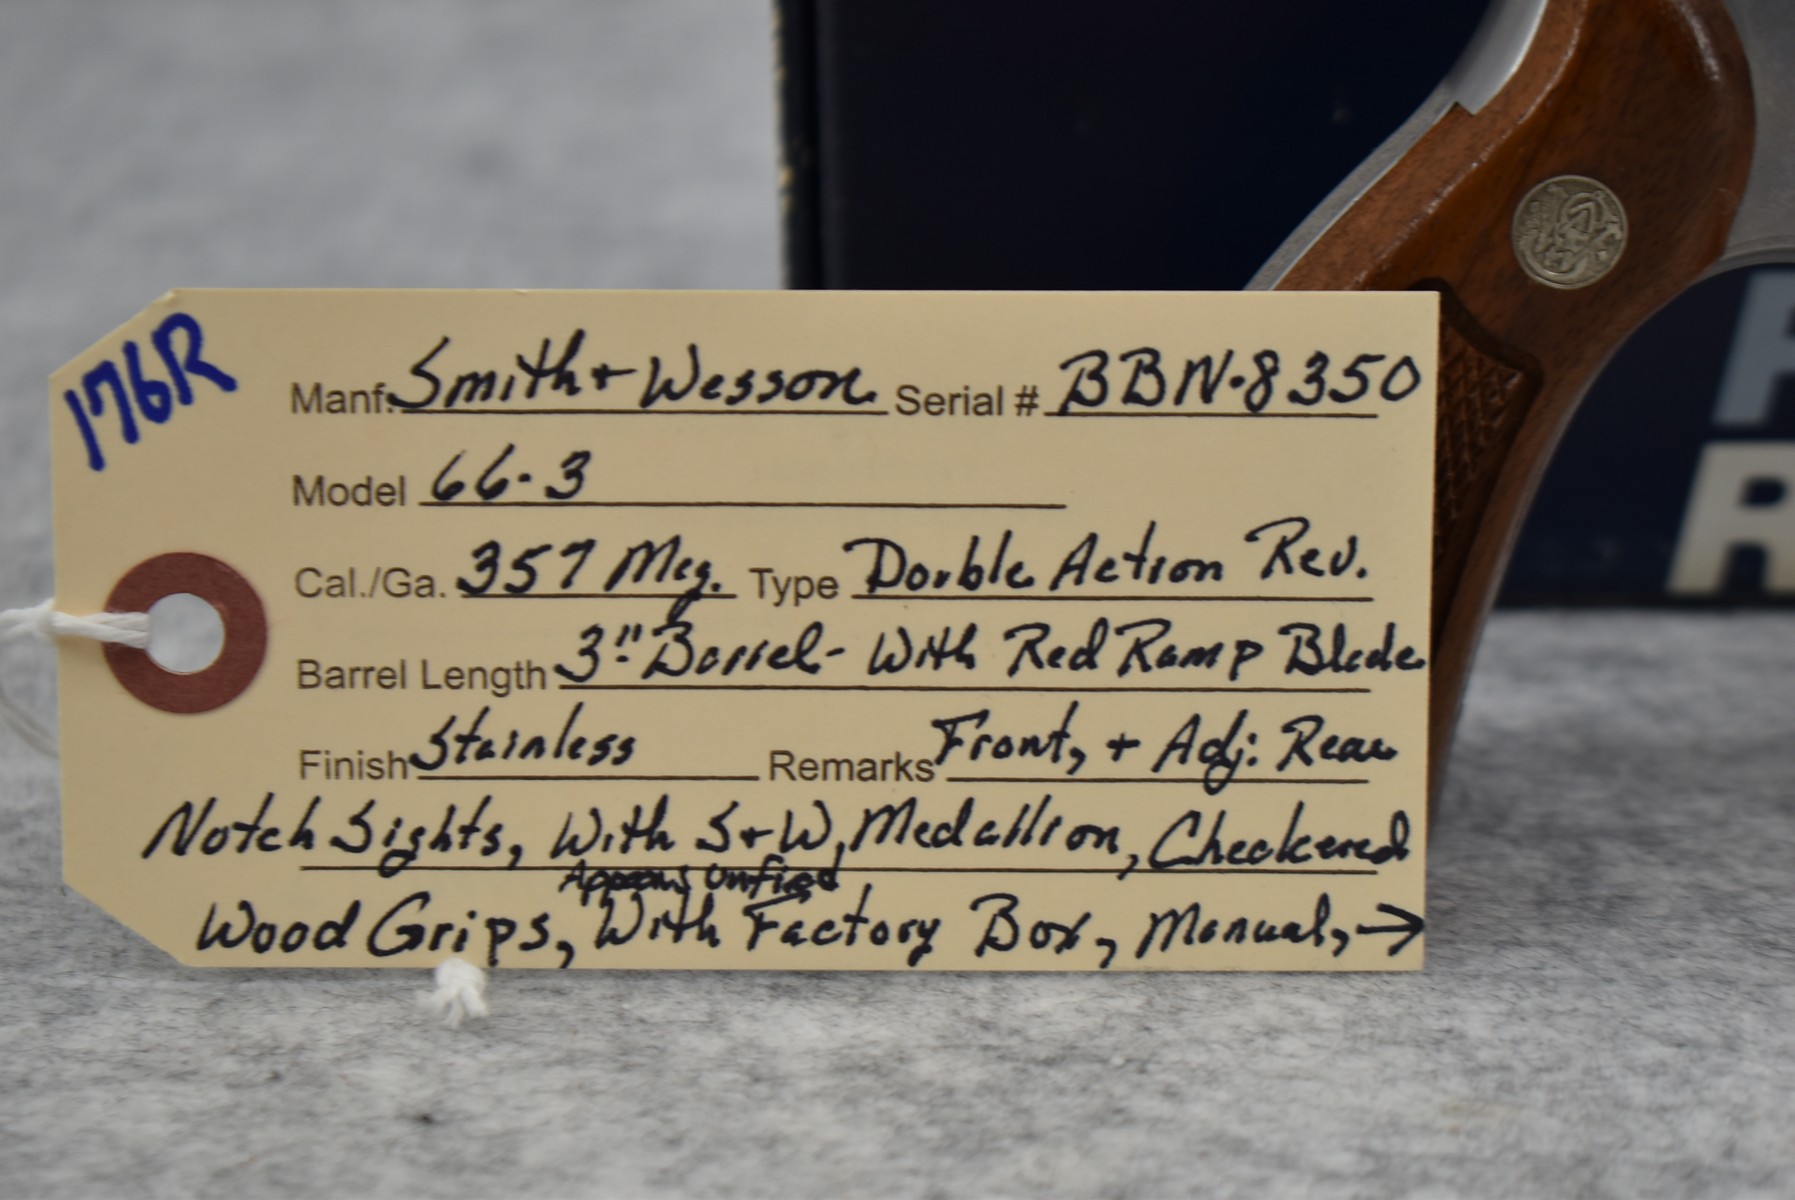 176R
Manf. Smith + Wesson Serial # BBN-8350
Model 66-3
Cal./Ga. 357 Mag. Type Double Action Rev.
Barrel Length 3" Barrel - With Red Ramp Blade
Finish Stainless Remarks Front, + Adj. Rear
Notch Sights, With S+W, Medallion, Checkered
Appears Unfired
Wood Grips, With Factory Box, Manual, →
R